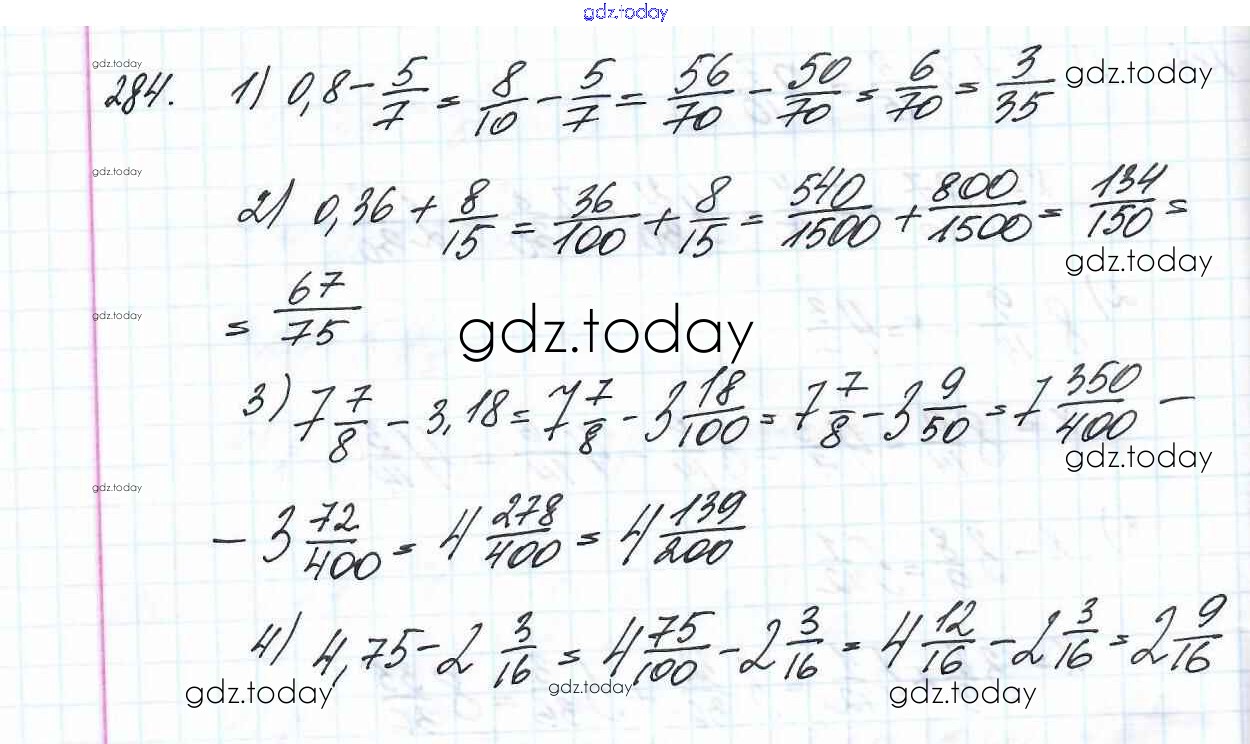 gdz.today
gdz.today
284. 1) 0,8 - 5/7 = 8/10 - 5/7 = 56/70 - 50/70 = 6/70 = 3/35 gdz.today
gdz.today
2) 0,36 + 8/15 = 36/100 + 8/15 = 540/1500 + 800/1500 = 134/150 =
gdz.today
= 67/75
gdz.today
gdz.today
3) 7 7/8 - 3,18 = 7 7/8 - 3 18/100 = 7 7/8 - 3 9/50 = 7 350/400 -
gdz.today
gdz.today
- 3 72/400 = 4 278/400 = 4 139/200
4) 4,75 - 2 3/16 = 4 75/100 - 2 3/16 = 4 12/16 - 2 3/16 = 2 9/16
gdz.today gdz.today gdz.today